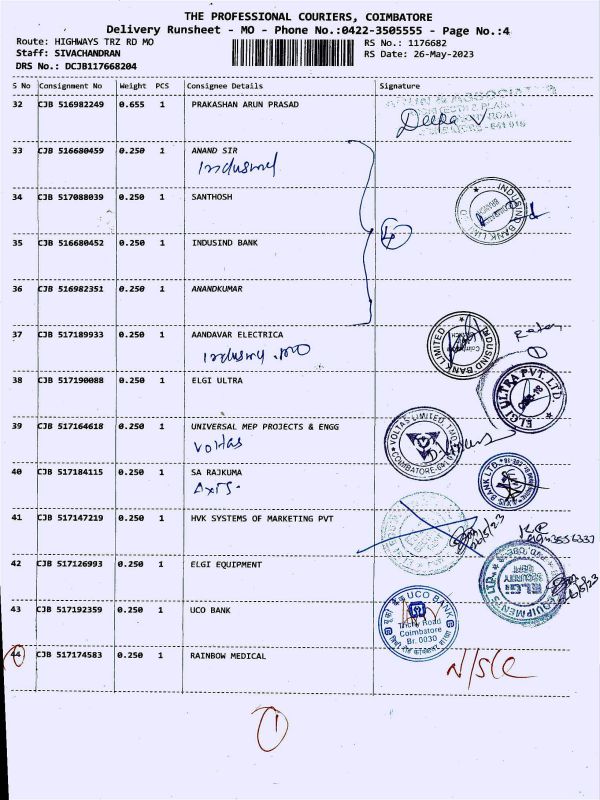 THE PROFESSIONAL COURIERS, COIMBATORE
Delivery Runsheet - MO - Phone No.:0422-3505555 - Page No.:4
Route: HIGHWAYS TRZ RD MO RS No.: 1176682
Staff: SIVACHANDRAN RS Date: 26-May-2023
DRS No.: DCJB117668204
S No Consignment No Weight PCS Consignee Details Signature
32 CJB 516982249 0.655 1 PRAKASHAN ARUN PRASAD
Deepa V
33 CJB 516680459 0.250 1 ANAND SIR
34 CJB 517088039 0.250 1 SANTHOSH
INDUSIND BANK LIMITED
35 CJB 516680452 0.250 1 INDUSIND BANK
4
36 CJB 516982351 0.250 1 ANANDKUMAR
37 CJB 517189933 0.250 1 AANDAVAR ELECTRICA
INDUSIND BANK LIMITED
1
38 CJB 517190088 0.250 1 ELGI ULTRA
ELGI ULTRA PVT. LTD.
39 CJB 517164618 0.250 1 UNIVERSAL MEP PROJECTS & ENGG
Voltas
VOLTAS LIMITED
COIMBATORE
40 CJB 517184115 0.250 1 SA RAJKUMA
Axis
AXIS BANK LTD
41 CJB 517147219 0.250 1 HVK SYSTEMS OF MARKETING PVT
26/5/23
42 CJB 517126993 0.250 1 ELGI EQUIPMENT
ELGI
SECURITY
DEPT
EQUIPMENTS LTD
26/5/23
43 CJB 517192359 0.250 1 UCO BANK
UCO BANK
Trichy Road
Coimbatore
Br. 0030
44 CJB 517174583 0.250 1 RAINBOW MEDICAL
N/S/C
1